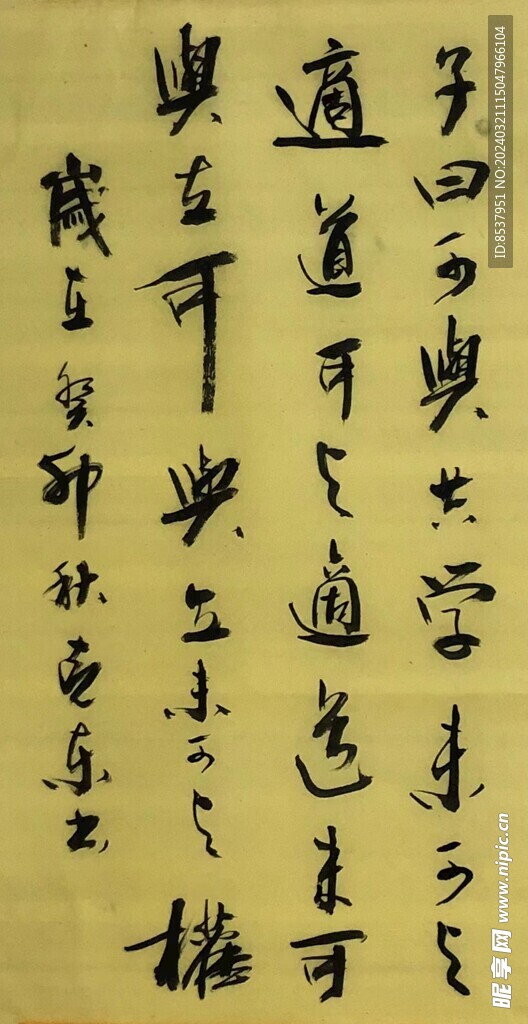 子曰可與共学未可与
適道可与適道未可
與立可與立未可与權
歲在癸卯秋克东书
ID:8537951 NO:20240321115047966104
昵享网 www.nipic.cn